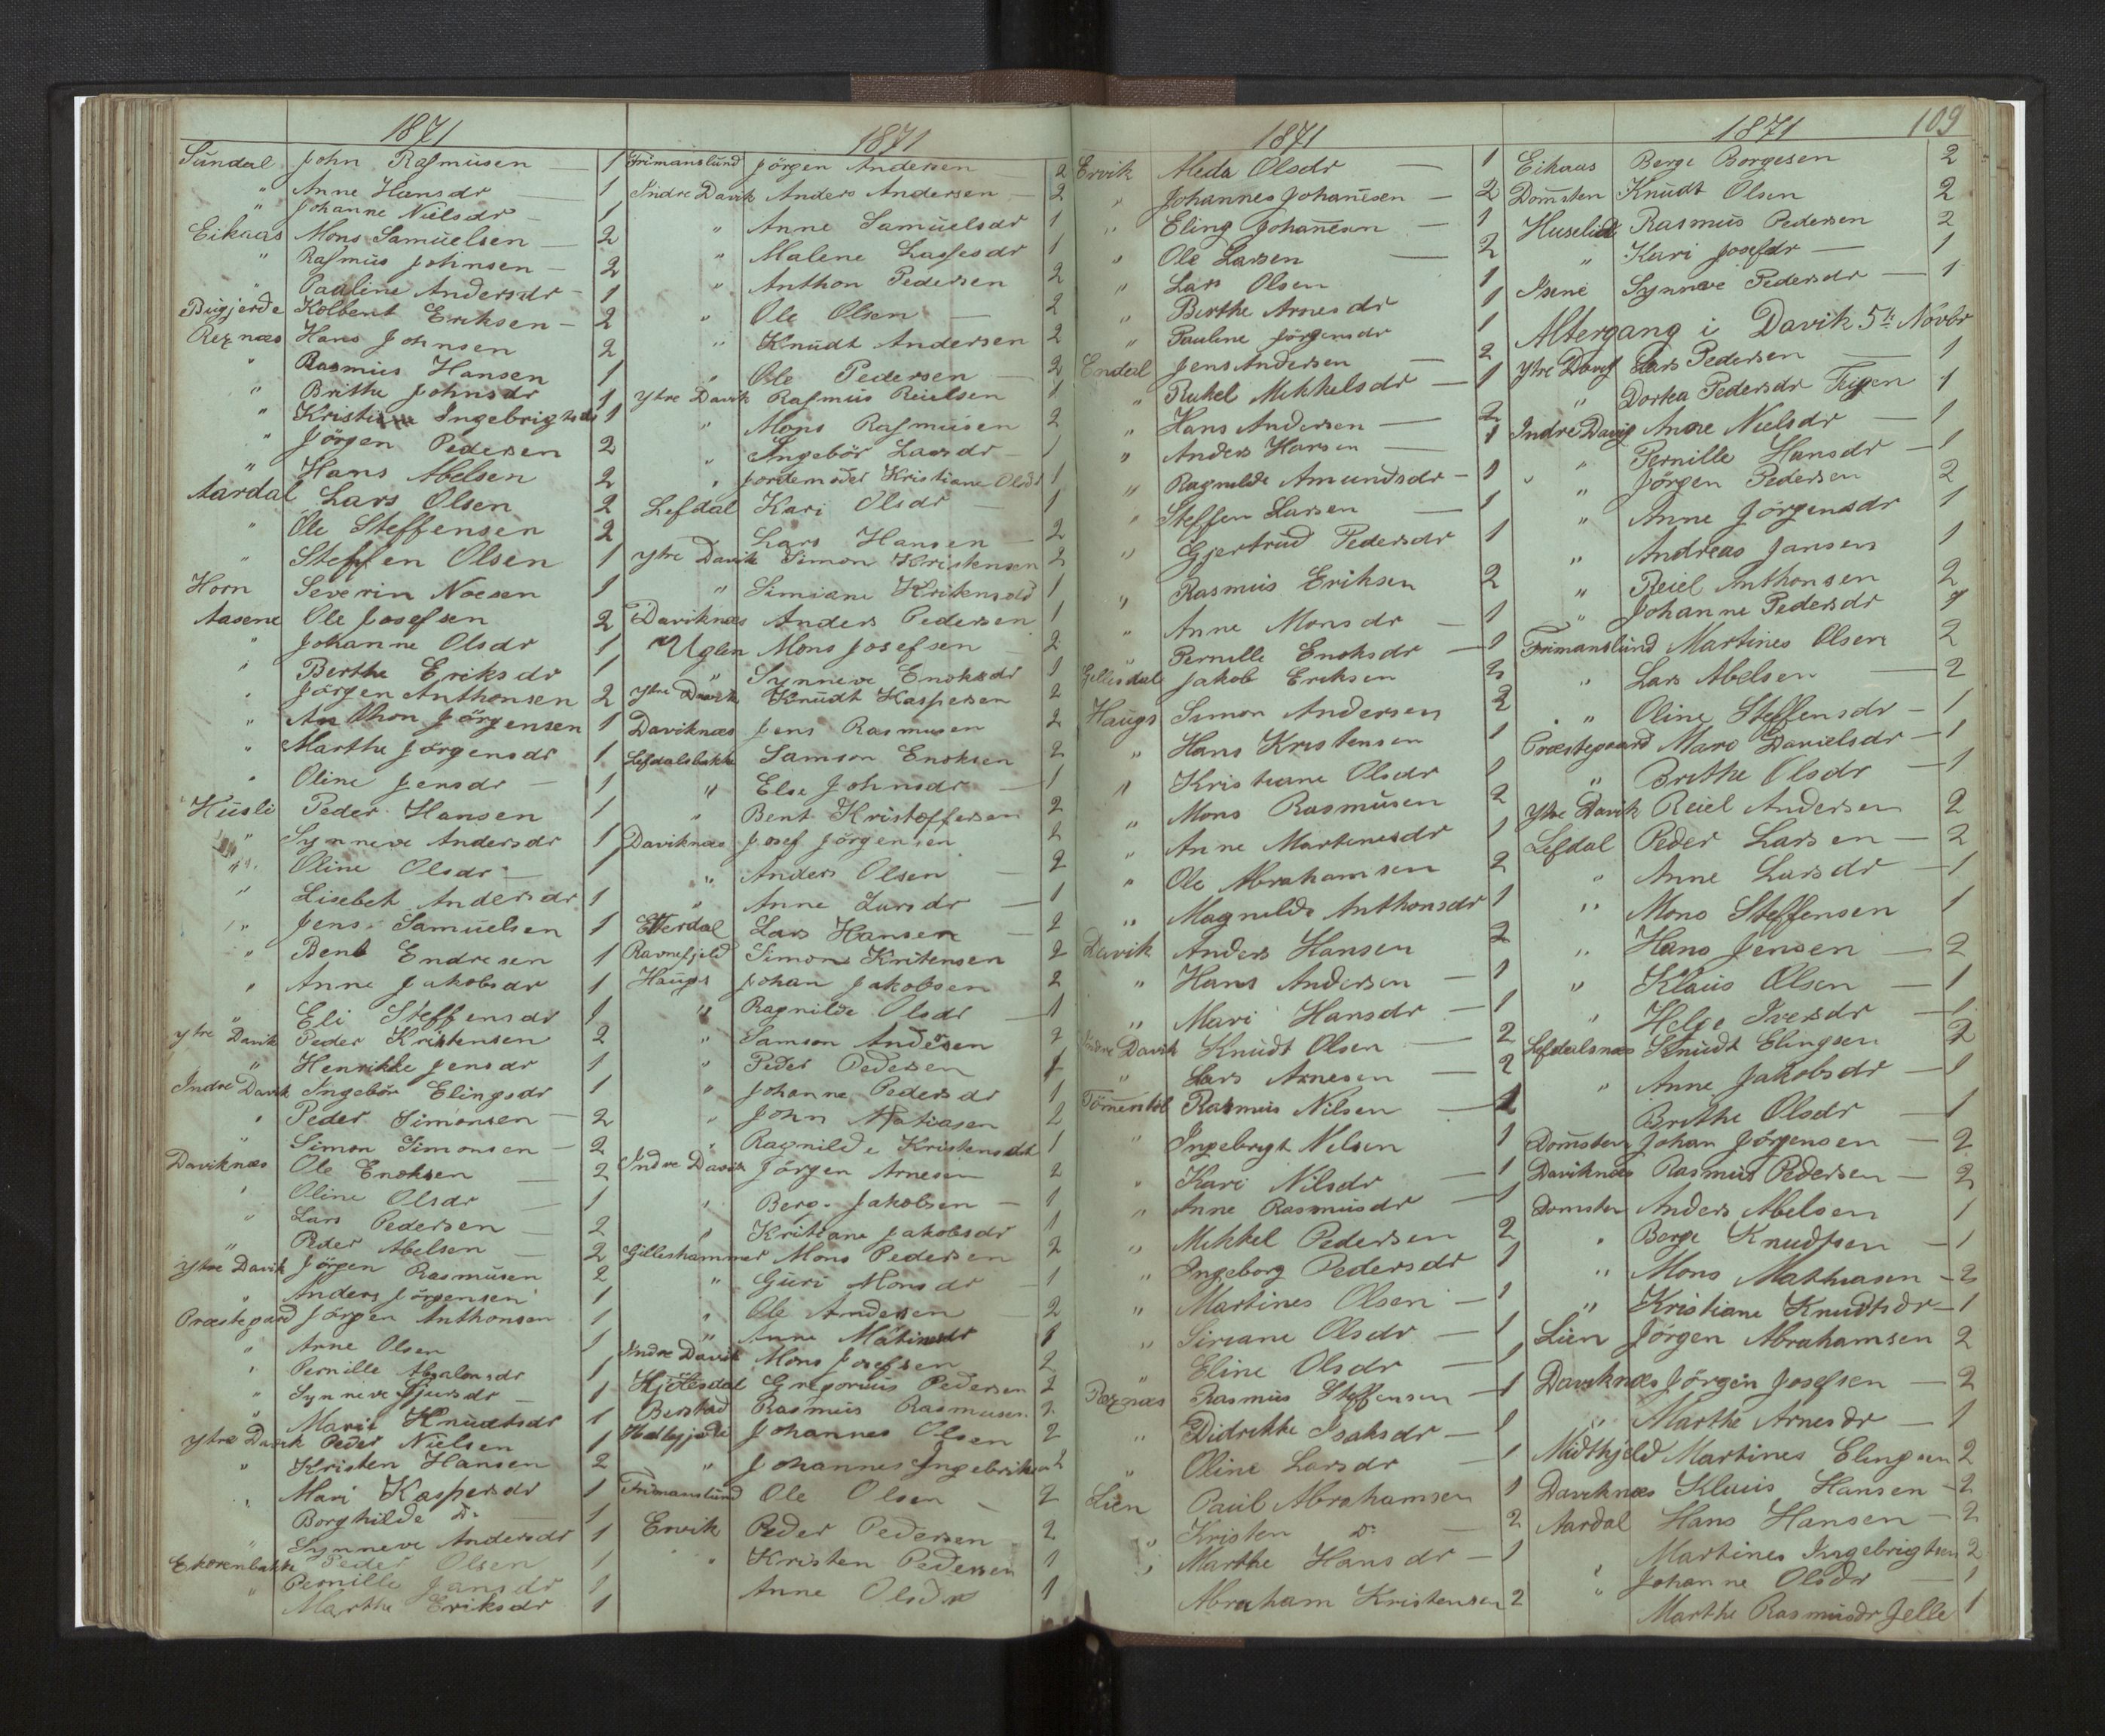 1871
Sundal John Rasmusen — 1
" Anne Hansdr 1
" Johanne Nielsdr — 1
Eikaas Mons Samuelsen — 2
" Rasmus Johnsen — 2
" Pauline Andersdr — 1
Bugjerde Kolbent Eriksen — 2
Rexnæs Hans Johnsen 2
" Rasmus Hansen 1
" Brithe Johnsdr 1
" Kristine Ingebrigtsdr 1
" Jörgen Pedersen 2
" Hans Abelsen 2
Aardal Lars Olsen 2
" Ole Steffensen 2
" Steffen Olsen 1
Horn Severin Noesen 1
Aasene Ole Josefsen 2
" Johanne Olsdr 1
" Berthe Eriksdr 1
" Jörgen Anthonsen 2
" Anthon Jörgensen 1
" Marthe Jörgensdr 1
" Oline Jensdr — 1
Husli Peder Hansen 1
" Synneve Andersdr 1
" Oline Olsdr — 1
" Lisebet Andersdr 1
" Jens Samuelsen 1
" Bent Endresen 1
" Anne Jakobsdr 1
" Eli Steffensdr 1
Ytre Davik Peder Kristensen 2
" Henrikke Jensdr 1
Indre Davik Ingebör Elingsdr 1
" Peder Simonsen — 2
" Simon Simonsen — 2
Daviknæs Ole Enoksen — 2
" Oline Olsdr — 1
" Lars Pedersen — 2
" Peder Abelsen — 2
Ytre Davik Jörgen Rasmusen 2
" Anders Jörgensen 1
Præstegard Jörgen Anthonsen 1
" Arne Olsen 1
" Pernille Absalonsdr 1
" Synneve Sjursdr — 1
" Marie Knudtsdr 1
Ytre Davik Peder Nielsen 1
" Kristen Hansen 2
" Mari Kaspersdr 1
" Borghilde Do — 1
" Synneve Andersdr 1
Ekorenbakke Peder Olsen 1
" Pernille Jansdr 1
Marthe Eriksdr 1
1871
Frimanslund Jörgen Andersen 2
Indre Davik Anders Andersen — 2
" Anne Samuelsdr 1
" Malene Lassesdr 1
" Anthon Pedersen 2
" Ole Olsen — 2
" Knudt Andersen 2
" Ole Pedersen — 2
Ytre Davik Rasmus Reielsen 1
" Mons Rasmusen 2
" Ingebör Larsdr — 1
" Jordemoder Kristiane Olsdr 1
Lefdal Kari Olsdr — 1
Lars Hansen — 2
Ytre Davik Simon Kristensen 2
" Simiane Kritensdr 1
Daviknæs Anders Pedersen 1
Uglen Mons Josefsen — 2
" Synneve Enoksdr 1
Ytre Davik Knudt Kaspersen 2
Daviknæs Jens Rasmusen 2
Lefdalsbakke Samson Enoksen 2
" Else Johnsdr — 1
" Bent Kristoffersen 2
Daviknæs Josef Jörgensen 2
" Anders Olsen — 2
" Anne Larsdr — 1
Etterdal Lars Hansen — 2
Ravnefjeld Simon Kritensen 2
Haugs Johan Jakobsen 2
" Ragnilde Olsdr — 1
" Samson Andersen 2
" Peder Pedersen 1
" Johanne Pedersdr 1
" John Matiasen 2
" Ragnilde Kristensdr 1
Indre Davik Jörgen Arnesen 2
" Berge Jakobsen — 1
" Kritiane Jakobsdr 1
Gilleshammer Mons Pedersen 2
" Guri Monsdr — 1
" Ole Andersen 2
" Anne Matinsdr 1
Indre Davik Mons Josefsen 2
Hjetlesdal Gregorius Pedersen 2
Berstad Rasmus Rasmusen 2
Hatlegjerde Johannes Olsen 2
" Johannes Ingebriksen 2
Frimanslund Ole Olsen — 2
Ervik Peder Pedersen — 2
" Kristen Pedersen 1
Anne Olsdr 1
1871
Ervik Meda Olsdr — 1
" Johannes Johannesen — 2
" Eling Johannesen — 1
" Ole Larsen — 2
" Lars Olsen 1
" Berthe Arnesdr 1
" Pauline Jörgensdr 1
Endal Jens Andersen — 2
" Rakel Mikkelsdr — 1
" Hans Andersen — 2
" Anders Hansen — 1
" Ragnilde Amundsdr — 1
" Steffen Larsen — 1
" Gjertrud Pedersdr 1
" Rasmus Eriksen 2
" Anne Monsdr — 1
" Pernille Enoksdr — 1
Gillesdal Jakob Eriksen 2
Haugs Simon Andersen 2
" Hans Kristensen 1
" Kristiane Olsdr 1
" Mons Rasmusen 2
" Anne Martinesdr 1
" Ole Abrahamsen 2
" Magnilde Anthonsdr 1
Davik Anders Hansen 2
" Hans Andersen — 1
" Mari Hansdr — 1
Indre Davik Knudt Olsen — 2
" Lars Arnesen — 2
Tömmerstöl Rasmus Nilsen — 2
" Ingebrigt Nelsen 1
" Kari Nilsdr — 1
" Anne Rasmusdr — 1
" Mikkel Pedersen 2
" Ingeborg Pedersdr 1
" Martines Olsen — 1
" Siriane Olsdr — 1
" Eline Olsdr — 1
Rexnæs Rasmus Steffensen — 1
" Didrikke Isaksdr — 1
" Oline Larsdr — 1
Lien Paul Abrahamsen 1
" Kristen Do — 2
" Marthe Hansdr — 1
Abraham Kristensen 2
1871 109
Eikaas Berge Borgesen 2
Domsten Knudt Olsen 2
Huselid Rasmus Pedersen 2
" Kari Josefdr — 1
Isene Synneve Pedersdr — 1
Altergang i Davik 5te Novbr
Ytre Davig Lars Pedersen — 1
" Dortea Pedersdr 1
Indre Davig Anne Nielsdr — 1
" Pernille Hansdr — 1
" Jörgen Pedersen 2
" Anne Jörgensdr 1
" Andreas Jansen 1
" Reiel Anthonsen 2
" Johanne Pedersdr 1
Frimanslund Martines Olsen 2
" Lars Abelsen — 2
" Oline Steffensdr — 1
Præstegaard Mari Danielsdr — 1
" Brithe Olsdr — 1
Ytre Davik Reiel Andersen 2
Lefdal Peder Larsen — 2
" Anne Larsdr — 1
" Mons Steffensen 1
" Hans Jensen — 2
" Klaus Olsen — 1
" Helge Iversdr — 1
Lefdalsnæs Knudt Elingsen 2
" Anne Jakobsdr — 1
Brithe Olsdr — 1
Domsten Johan Jörgensen — 2
Daviknæs Rasmus Pedersen — 2
Domsten Anders Abelsen 1
" Berge Knudtsen — 1
" Mons Mathiasen — 2
" Kristiane Knudtsdr — 1
Lien Jörgen Abrahamsen 2
Daviknæs Jörgen Josefsen — 2
" Marthe Arnesdr — 1
Midthjeld Martines Elingsen 2
Daviknæs Klaus Hansen — 2
Aardal Hans Hansen — 2
" Martines Ingebrigtsen 2
" Johanne Olsdr — 1
Marthe Rasmusdr Jelle 1